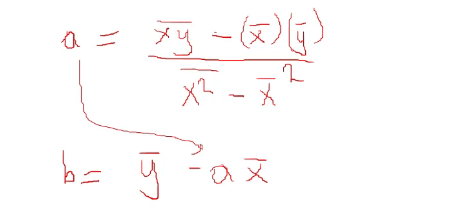 a = (x̅y̅ - (x̅)(y̅)) / (x̅²̅ - x̅²)
b = y̅ - a x̅